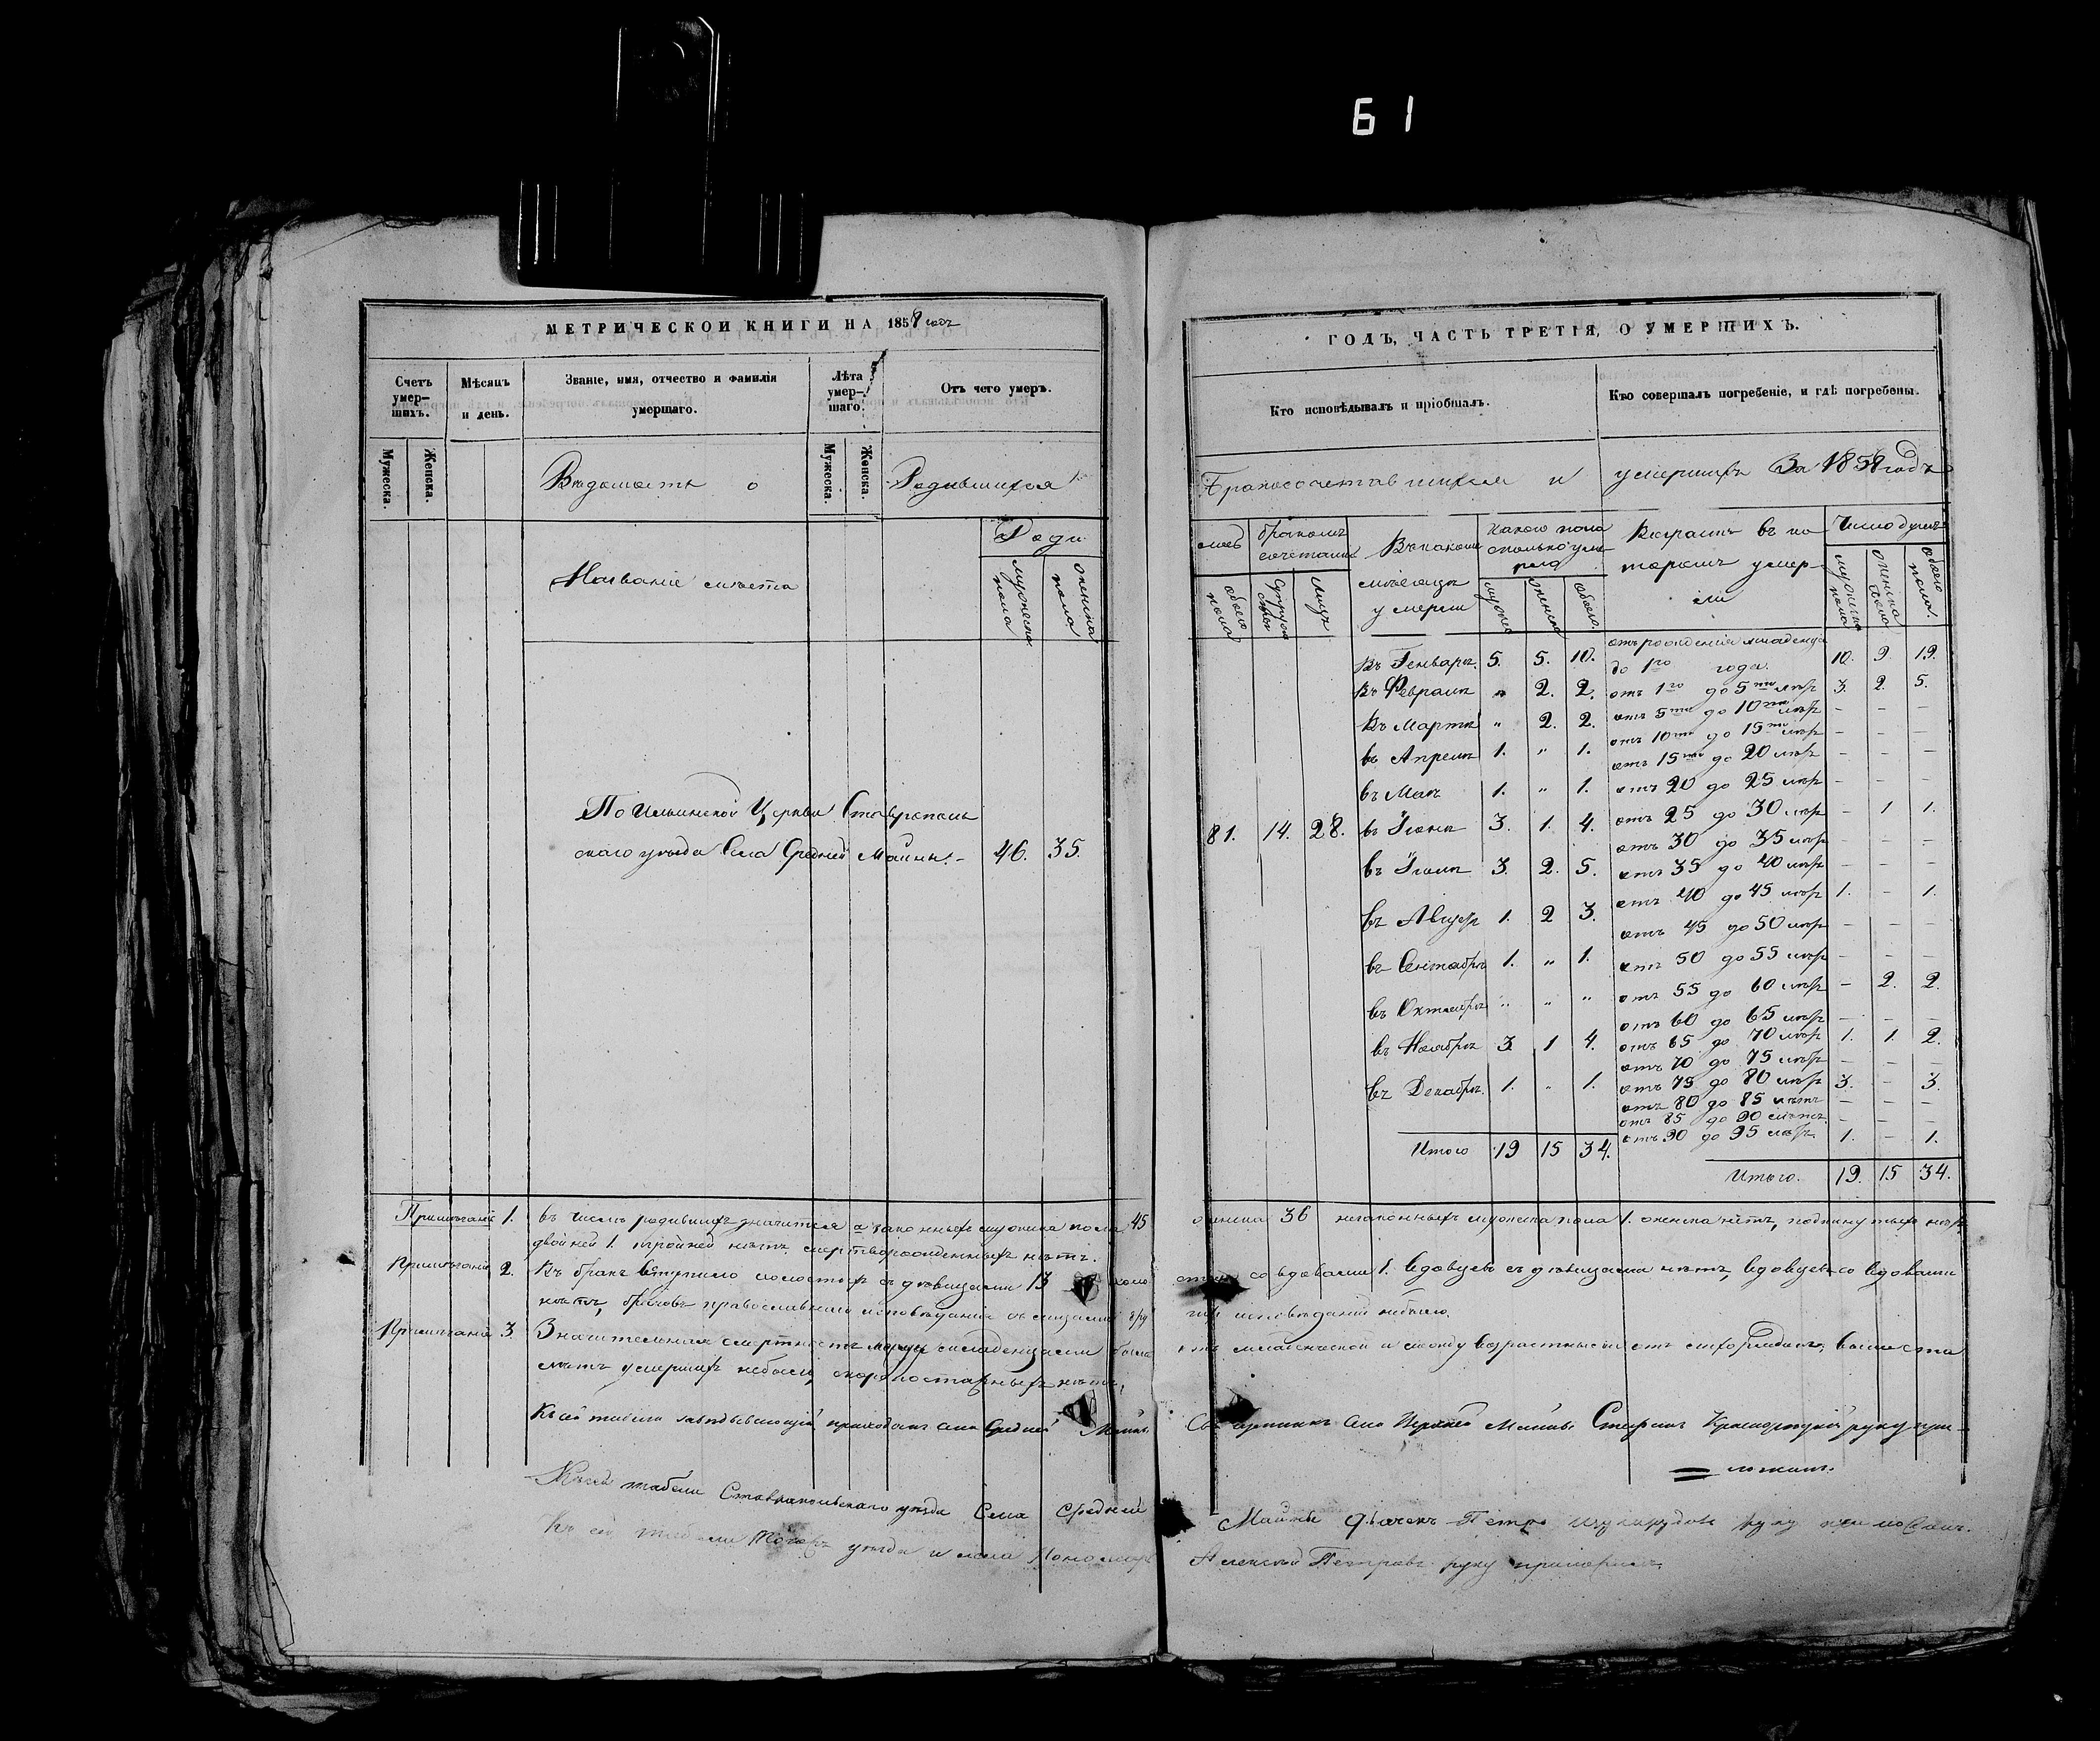 61
МЕТРИЧЕСКОЙ КНИГИ НА 1858 годъ
Счетъ умер-шихъ.
Мѣсяцъ и день.
Званіе, имя, отчество и фамилія умершаго.
Лѣта умер-шаго.
Отъ чего умеръ.
Мужеска.
Женска.
Мужеска.
Женска.
Вѣдомость о Родившихся
Названіе мѣста
Роди
мужеска пола
женска пола
По Ильинской Церкви Ставрополь
скаго уѣзда Села Средней Майны.- 46. 35.
Примѣчаніе 1. въ числѣ родившихъ значится законныхъ мужеска пола 45
двойней 1. тройней нѣтъ, мертворожденныхъ нѣтъ.
Примѣчаніе 2. Въ бракъ вступило холостыхъ съ дѣвицами 13
нѣтъ, браковъ православнаго исповѣданія съ лицами дру
Примѣчаніе 3. Значительная смертность между младенцами была
лѣтъ умершихъ небыло, скоропостижныхъ нѣтъ,
Къ сей табели завѣдывающій приходомъ села Средней Майны
Къ сей табели Ставропольскаго уѣзда Села Средней
Къ сей табели тогожъ уѣзда и села Пономарь
ГОДЪ, ЧАСТЬ ТРЕТІЯ, О УМЕРШИХЪ.
Кто исповѣдывалъ и пріобщалъ.
Кто совершалъ погребеніе, и гдѣ погребены.
Бракосочетавшихся и умершихъ За 1858 годъ
лось
обоего пола
бракомъ сочетались
супруж
лицъ
Въ какомъ мѣсяцѣ умерли
какого пола сколько умерло
мужск
женска
обоего
Возрастъ въ которомъ умер-ли
Число душъ
мужеска пола
женска пола
обоего пола.
81. 14. 28.
Въ Генварѣ. 5. 5. 10.
Въ Февралѣ " 2. 2.
Въ Мартѣ " 2. 2.
въ Апрелѣ 1. " 1.
въ Маѣ 1. " 1.
въ Іюнѣ 3. 1. 4.
въ Іюлѣ 3. 2. 5.
въ Август 1. 2 3.
въ Сентябрѣ 1. " 1.
въ Октябрѣ " " "
въ Ноябрѣ 3 1 4.
въ Декабрѣ 1. " 1.
Итого 19 15 34.
отъ рожденія младенца
до 1го года. 10. 9. 19.
отъ 1го до 5ти лѣтъ 3. 2. 5.
отъ 5ти до 10ти лѣтъ - - -
отъ 10ти до 15ти лѣтъ - - -
отъ 15ти до 20 лѣтъ - - -
отъ 20 до 25 лѣтъ - - -
отъ 25 до 30 лѣтъ - 1 1.
отъ 30 до 35 лѣтъ - - -
отъ 35 до 40 лѣтъ - - -
отъ 40 до 45 лѣтъ 1. - 1.
отъ 45 до 50 лѣтъ - - -
отъ 50 до 55 лѣтъ - - -
отъ 55 до 60 лѣтъ - 2. 2.
отъ 60 до 65 лѣтъ - - -
отъ 65 до 70 лѣтъ 1. 1. 2.
отъ 70 до 75 лѣтъ - - -
отъ 75 до 80 лѣтъ 3. - 3.
отъ 80 до 85 лѣтъ - - -
отъ 85 до 90 лѣтъ - - -
отъ 90 до 95 лѣтъ. 1. - 1.
Итого. 19. 15 34.
женска 36 незаконныхъ мужеска пола 1. женска нѣтъ, подкинутыхъ нѣтъ,
со вдовами 1. вдовцевъ съ дѣвицами нѣтъ, вдовцевъ со вдовами
гихъ исповѣданій небыло.
отъ младенческой а между возрастными отъ болѣе ста
Священникъ села Майны Стефанъ руку при-
ложилъ.
Майны Дьячекъ Петръ руку приложилъ.
Алексѣй Петровъ руку приложилъ